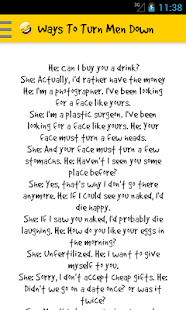 3G 11:38
Ways To Turn Men Down
He: can I buy you a drink?
She: Actually, I'd rather have the money
He: I'm a photographer. I've been looking
for a face like yours.
She: I'm a plastic surgeon. I've been
looking for a face like yours. He: Your
face must turn a few heads.
She: And your face must turn a few
stomachs. He: Haven't I seen you some
place before?
She: Yes, that's why I don't go there
anymore. He: If I could see you naked, I'd
die happy.
She: If I saw you naked, I'd probably die
laughing. He: How do you like your eggs in
the morning?
She: Unfertilized. He: I want to give
myself to you.
She: Sorry, I don't accept cheap gifts. He:
Didn't we go on a date once? or was it
twice?